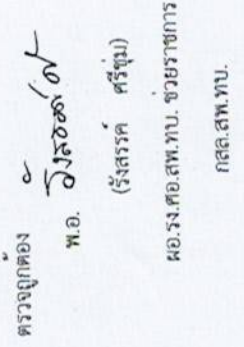 ตรวจถูกต้อง
พ.อ. รังสรรค์
(รังสรรค์ ศรีชุ่ม)
ผอ.รง.ศอ.สพ.ทบ. ช่วยราชการ
กสล.สพ.ทบ.